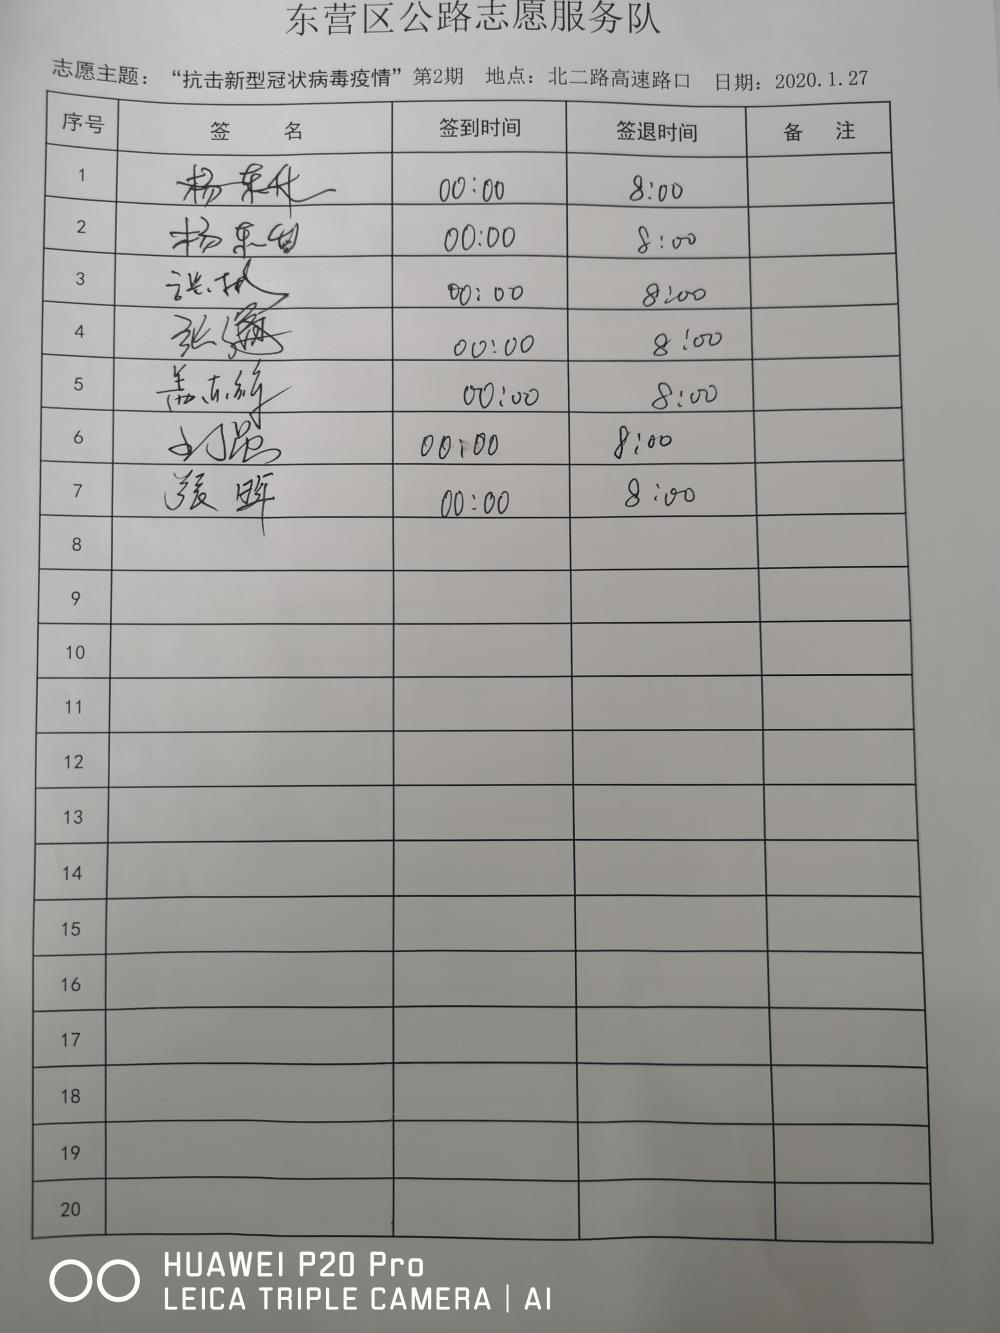 东营区公路志愿服务队
志愿主题：“抗击新型冠状病毒疫情”第2期 地点：北二路高速路口 日期：2020.1.27
序号 签 名 签到时间 签退时间 备 注
1 杨东 00:00 8:00
2 杨东 00:00 8:00
3 00:00 8:00
4 张 00:00 8:00
5 00:00 8:00
6 刘 00:00 8:00
7 张晖 00:00 8:00
8
9
10
11
12
13
14
15
16
17
18
19
20
HUAWEI P20 Pro
LEICA TRIPLE CAMERA | AI